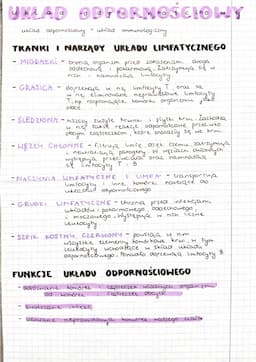 UKŁAD ODPORNOŚCIOWY
układ odpornościowy - układ immunologiczny
TKANKI I NARZĄDY UKŁADU LIMFATYCZNEGO
- MIGDAŁKI - bronią organizm przed zakażeniami drogą
oddechową i pokarmową. Zatrzymują się w
nich i namnażają limfocyty
- GRASICA - dojrzewają w niej limfocyty T oraz są
w niej eliminowane nieprawidłowe limfocyty
T, np. rozpoznające komórki organizmu jako
obce
- ŚLEDZIONA - niszczy zużyte krwinki i płytki krwi. Zachodzą
w niej reakcje odpornościowe przeciwko
obcym cząsteczkom, które znalazły się we krwi
- WĘZŁY CHŁONNE - filtrują limfę
i neutralizują patogeny. W węzłach limfatycznych
wytwarzają przeciwciała oraz namnażają
się limfocyty T i B
- NACZYNIA LIMFATYCZNE I LIMFA - transportują
limfocyty i inne komórki należące do
układu odpornościowego
- GRUDKI LIMFATYCZNE - chronią przed infekcjami
układów: pokarmowego, oddechowego,
i moczowego. Występują w nich liczne
leukocyty
- SZPIK KOSTNY CZERWONY - powstają w nim
wszystkie elementy komórkowe krwi, w tym
leukocyty wchodzące w skład układu
odpornościowego. Ponadto dojrzewają limfocyty B
FUNKCJE UKŁADU ODPORNOŚCIOWEGO
- odróżnianie komórek i cząsteczek własnych organizmu
od komórek i cząsteczek obcych
-
- usuwanie nieprawidłowych komórek własnego ciała